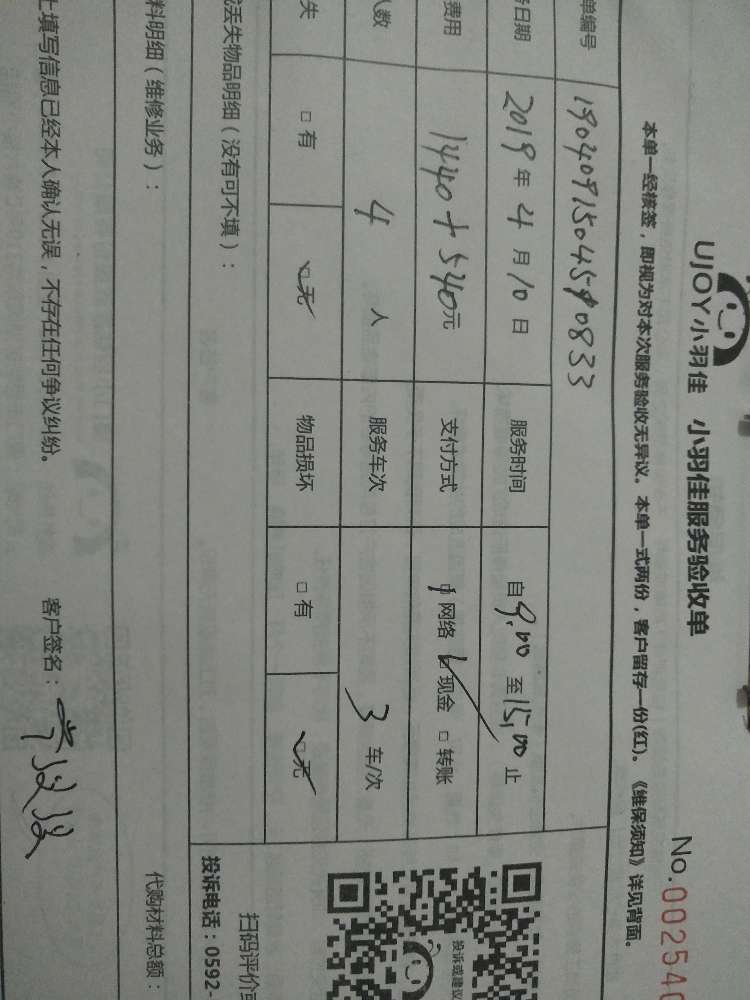 UJOY小羽佳 小羽佳服务验收单
No.00254
本单一经核签，即视为对本次服务验收无异议。本单一式两份，客户留存一份(红)。《维保须知》详见背面。
单编号
日期 2019 年 4 月 10 日 服务时间 自 9:00 至 15:00 止
费用 1440+540 元 支付方式 □网络 □现金 □转账
人数 4 人 服务车次 3 车/次
失 □有 □无 物品损坏 □有 □无
丢失物品明细（没有可不填）：
投诉或建议
扫码评价
投诉电话：0592-
料明细（维修业务）：
代购材料总额：
上填写信息已经本人确认无误，不存在任何争议纠纷。 客户签名：